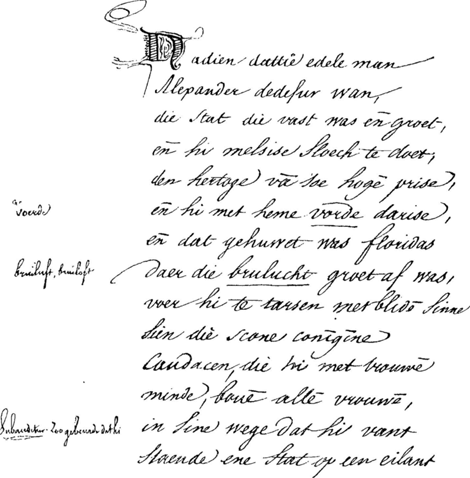 Nadien dattie edele man
Alexander dedefur wan,
die stat die vast was en̄ groet,
en̄ hi melsise sloech te doet,
den hertoge vā soe hogē prise,
voerde
en̄ hi met heme vorde darise,
en̄ dat gehuwet was floridas
bruiluft, bruiloft
daer die brulucht groet af was,
voer hi te tarsen met blidē sinne
sien die scone conīgīne
Candacen, die hi met trouwē
minde, bouē allē vrouwē,
Subauditur. zoo gebeurde dat hi
in sine wege dat hi vant
staende ene stat op een eilant